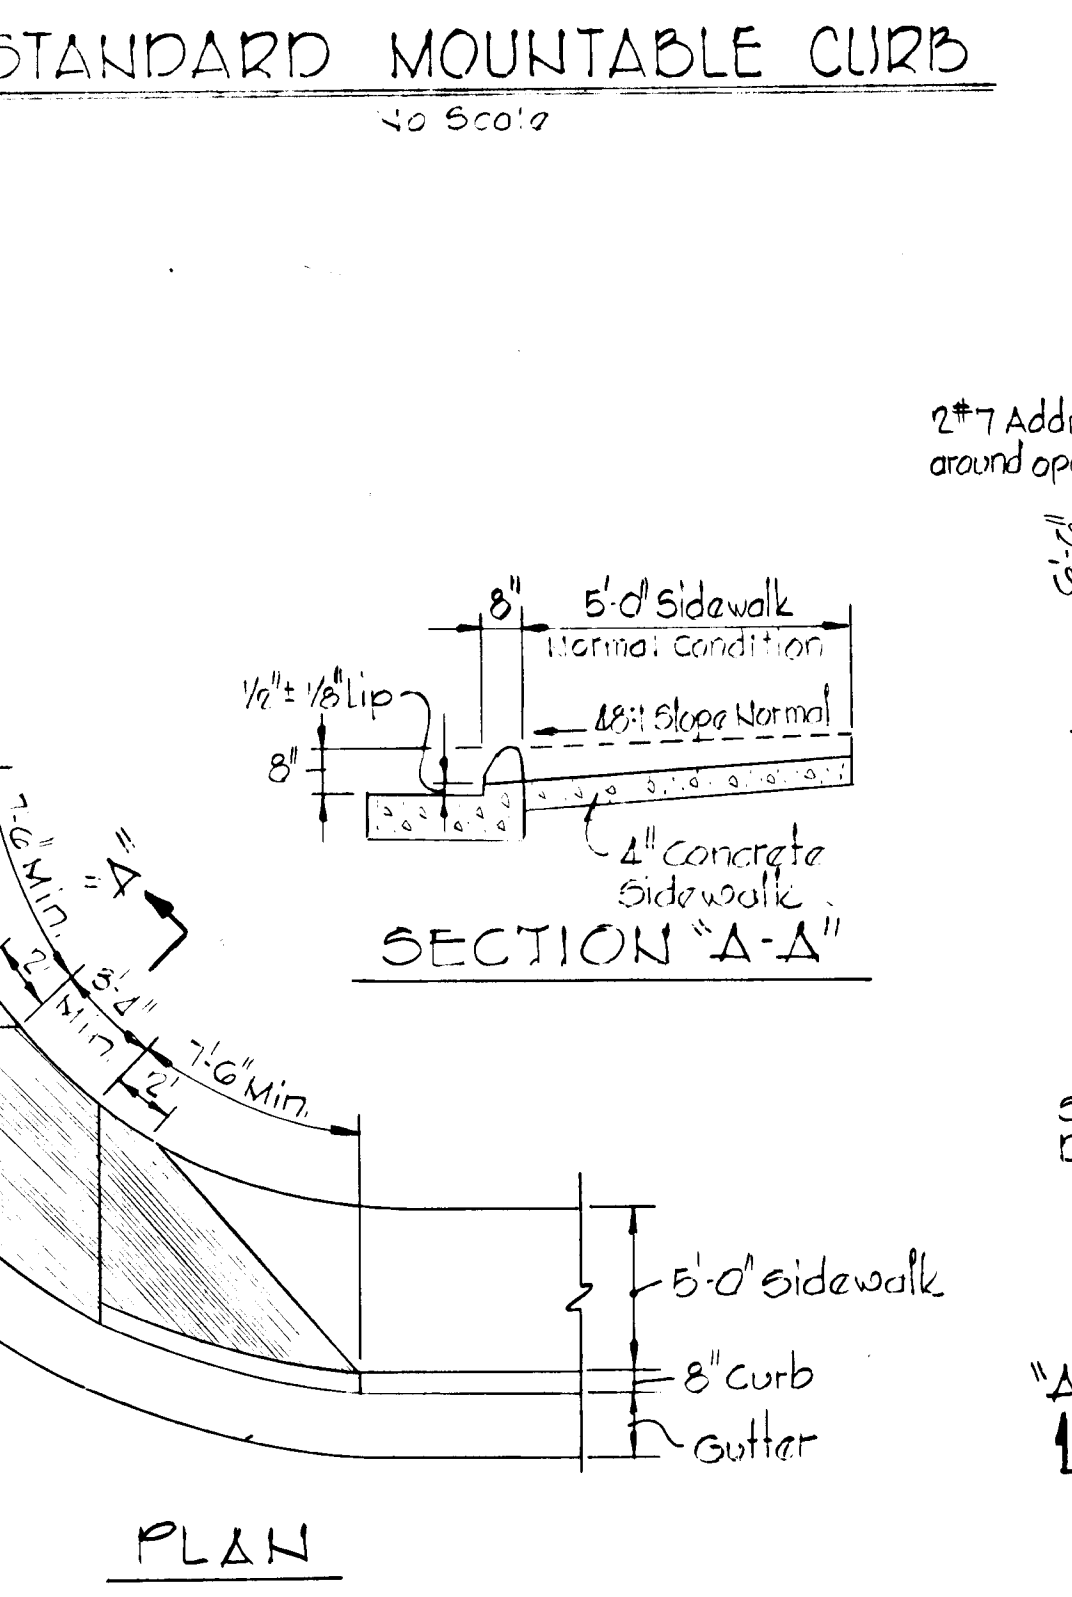 STANDARD MOUNTABLE CURB
No Scale
2#7 Add
around op
8"
5'-0" Sidewalk
Normal Condition
1/2" ± 1/8" Lip
48:1 Slope Normal
8"
4" Concrete
Sidewalk
SECTION "A-A"
7'-6" Min.
"A"
2'
3'-4"
Min.
7'-6" Min.
2'
5'-0" Sidewalk
8" Curb
Gutter
"A
PLAN